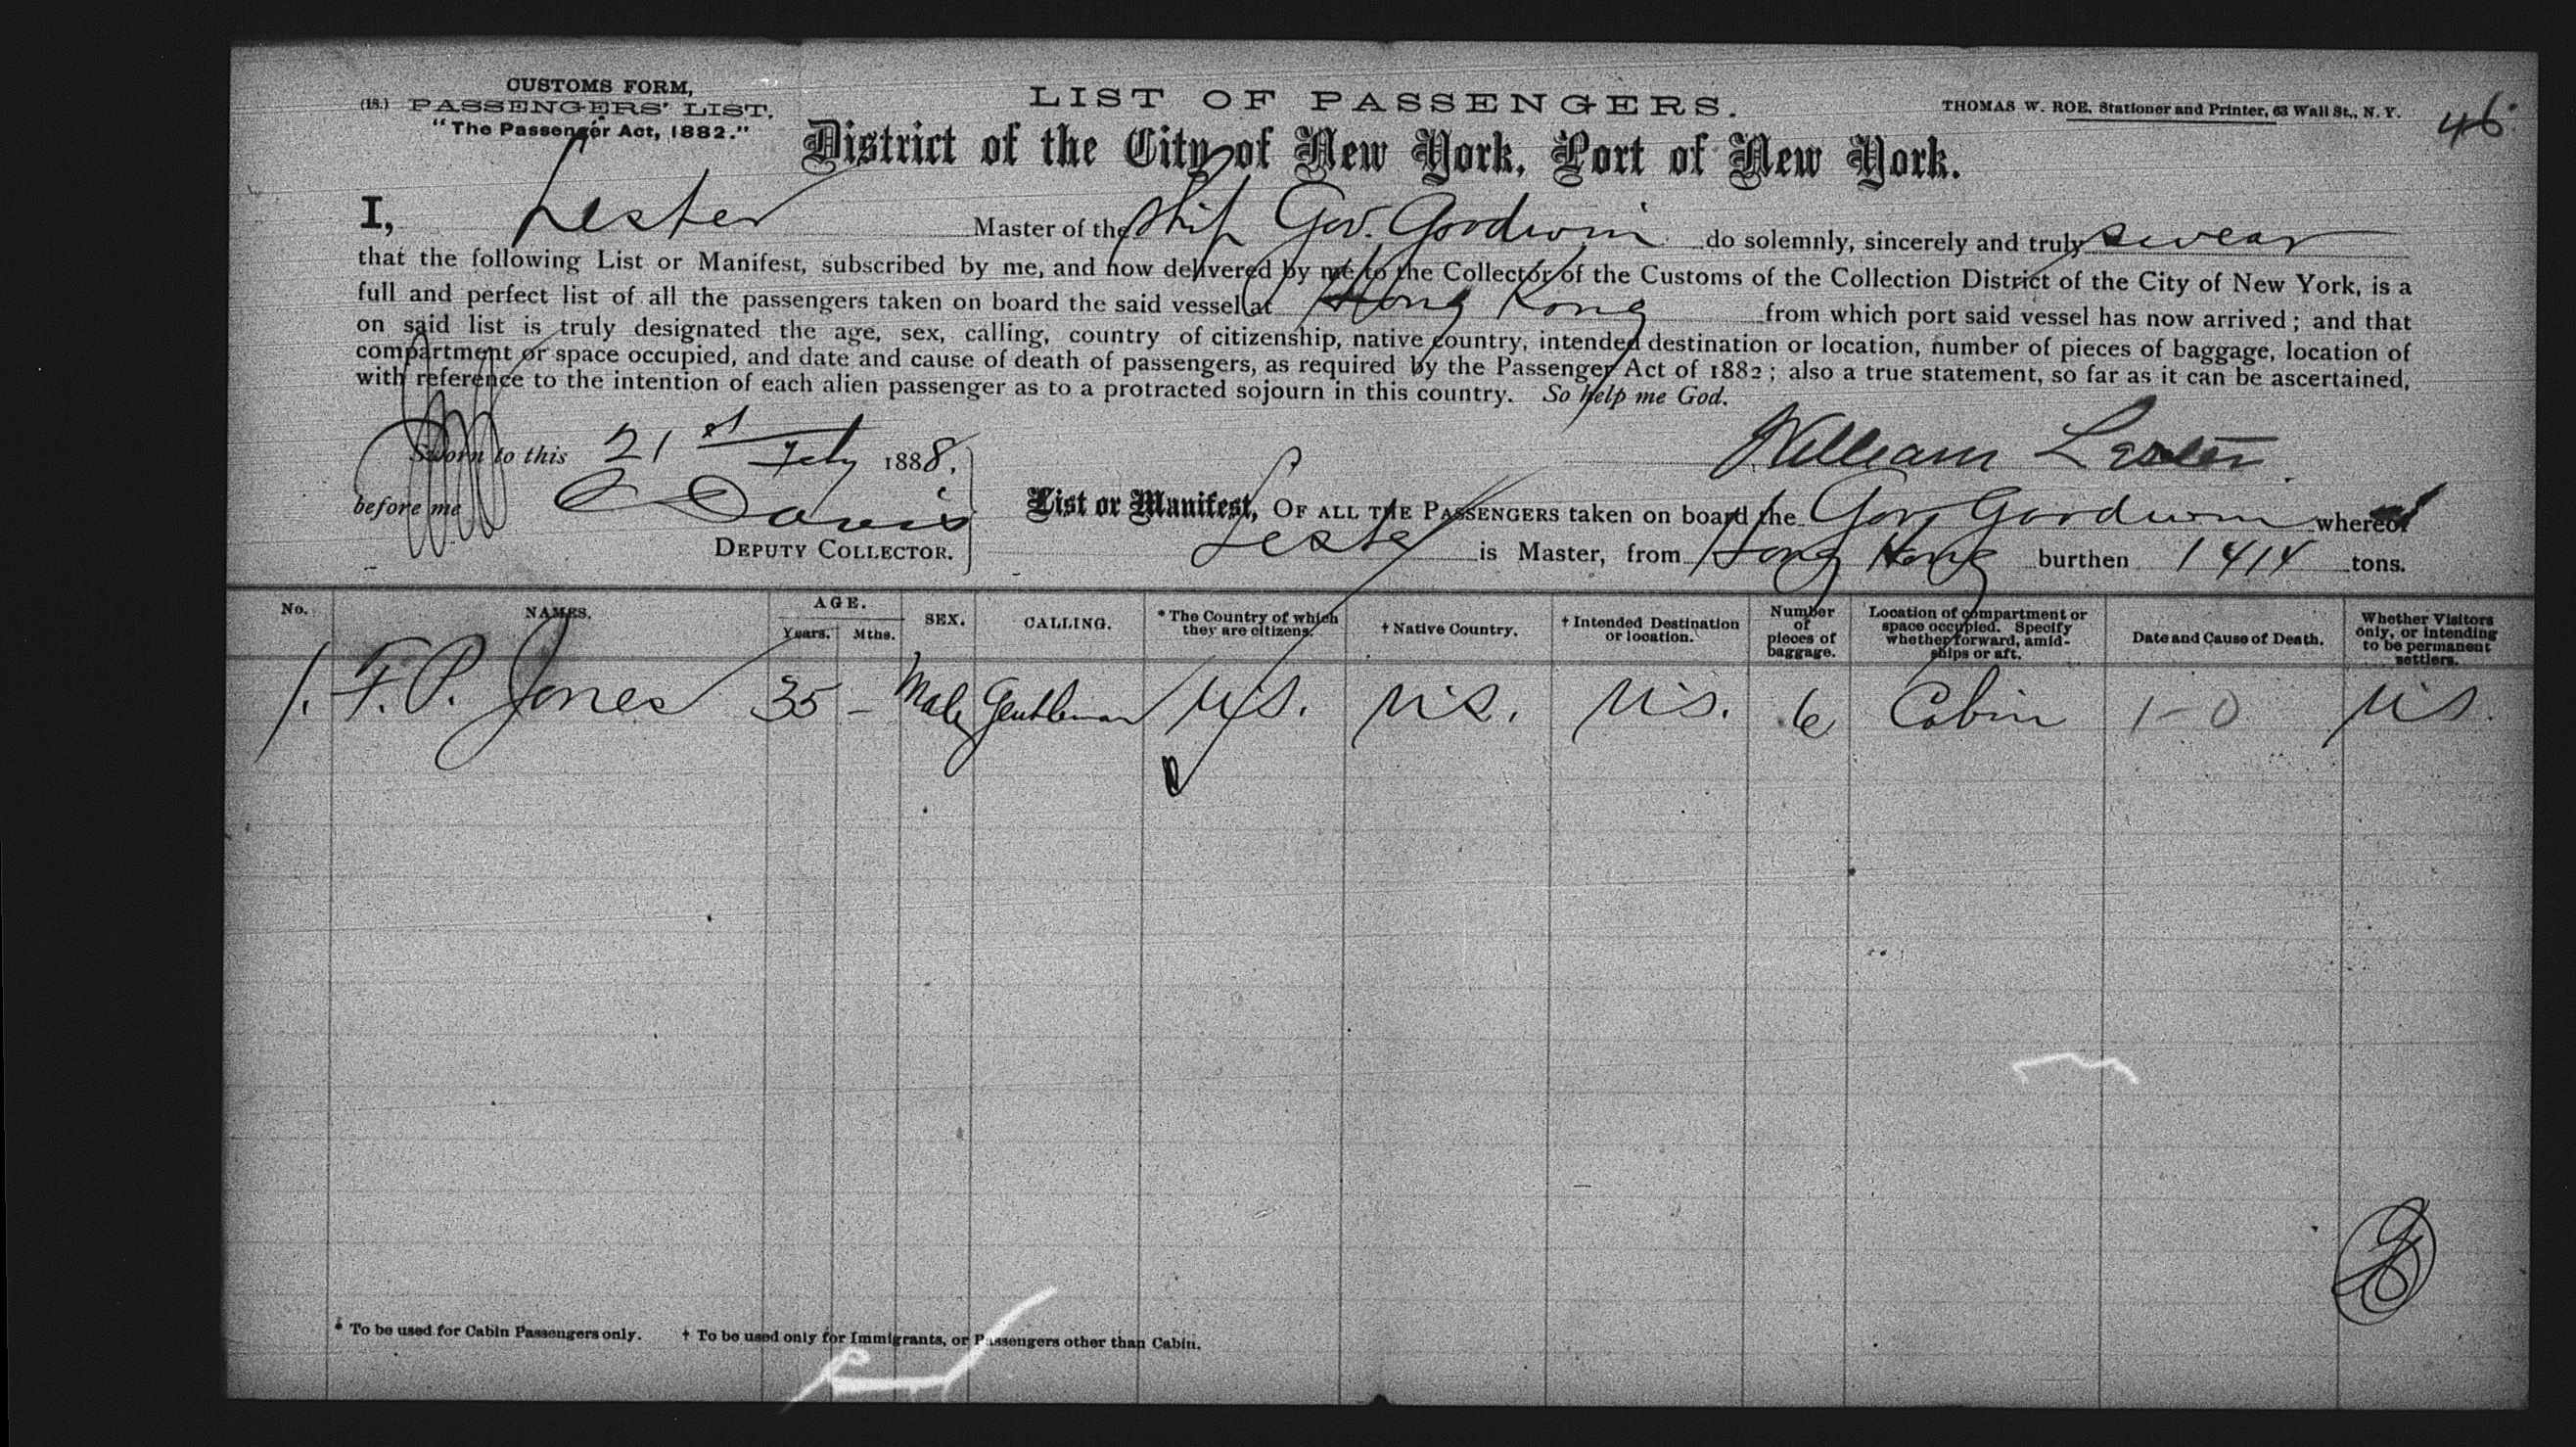 CUSTOMS FORM,
(18.) PASSENGERS' LIST.
"The Passenger Act, 1882."
LIST OF PASSENGERS.
THOMAS W. ROE, Stationer and Printer, 63 Wall St., N. Y.
46
District of the City of New York, Port of New York.
I, Lester Master of the Ship Gov. Goodwin do solemnly, sincerely and truly swear
that the following List or Manifest, subscribed by me, and now delivered by me to the Collector of the Customs of the Collection District of the City of New York, is a
full and perfect list of all the passengers taken on board the said vessel at Hong Kong from which port said vessel has now arrived; and that
on said list is truly designated the age, sex, calling, country of citizenship, native country, intended destination or location, number of pieces of baggage, location of
compartment or space occupied, and date and cause of death of passengers, as required by the Passenger Act of 1882; also a true statement, so far as it can be ascertained,
with reference to the intention of each alien passenger as to a protracted sojourn in this country. So help me God.
Sworn to this 21st Feby 1888,
William Lester
before me C Davis
DEPUTY COLLECTOR.
List or Manifest, OF ALL THE PASSENGERS taken on board the Gov. Goodwin whereof
Lester is Master, from Hong Kong burthen 1414 tons.
No. NAMES. AGE. Years. Mths. SEX. CALLING. * The Country of which they are citizens. † Native Country. † Intended Destination or location. Number of pieces of baggage. Location of compartment or space occupied. Specify whether forward, amidships or aft. Date and Cause of Death. Whether Visitors only, or intending to be permanent settlers.
1. F. P. Jones 35 – Male Gentleman U.S. U.S. U.S. 6 Cabin 1-0 U.S.
* To be used for Cabin Passengers only. † To be used only for Immigrants, or Passengers other than Cabin.